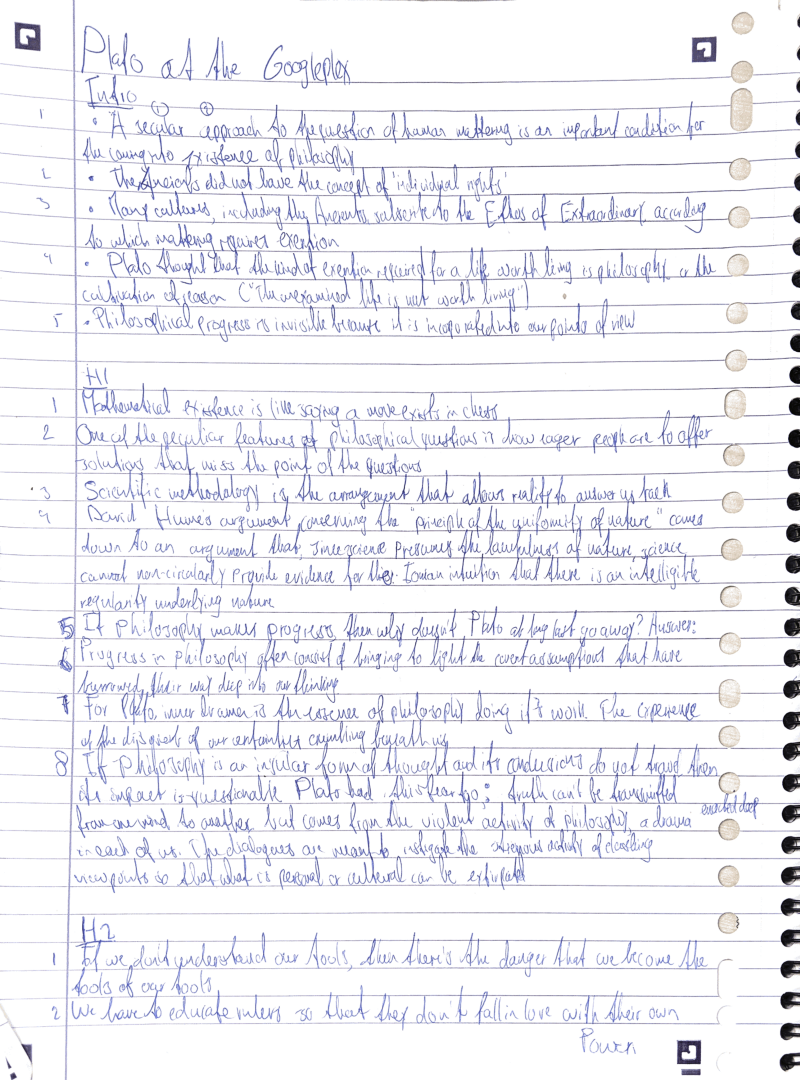 Plato at the Googleplex
Intro
① ②
1 • A secular approach to the question of human mattering is an important condition for
the coming into existence of philosophy
2 • The Ancients did not have the concept of 'individual rights'
3 • Many cultures, including the Ancients, subscribe to the Ethos of Extraordinary, according
to which mattering requires exertion
4 • Plato thought that the kind of exertion required for a life worth living is philosophy, or the
cultivation of reason ("The unexamined life is not worth living")
5 • Philosophical progress is invisible because it is incorporated into our points of view
H1
1 Mathematical existence is like saying a move exists in chess
2 One of the peculiar features of philosophical questions is how eager people are to offer
solutions that miss the point of the questions
3 Scientific methodology is the arrangement that allows reality to answer us back
4 David Hume's argument concerning the "principle of the uniformity of nature" comes
down to an argument that, since science presumes the lawfulness of nature, science
cannot non-circularly provide evidence for the: Ionian intuition that there is an intelligible
regularity underlying nature
5 If philosophy makes progress, then why doesn't Plato at long last go away? Answer:
6 Progress in philosophy often consist of bringing to light the covert assumptions that have
burrowed their way deep into our thinking
7 For Plato, inner drama is the essence of philosophy doing it's work. The experience
of the disquiet of our certainties crumbling beneath us
8 If philosophy is an insular form of thought and its conclusions do not travel then
its impact is questionable Plato had this fear too: truth can't be transmitted
from one mind to another but comes from the violent activity of philosophy, a drama enacted deep
in each of us. The dialogues are meant to instigate the strenuous activity of clashing
viewpoints so that what is personal or cultural can be extirpated
H2
1 If we don't understand our tools, then there's the danger that we become the
tools of our tools
2 We have to educate rulers so that they don't fall in love with their own
Power